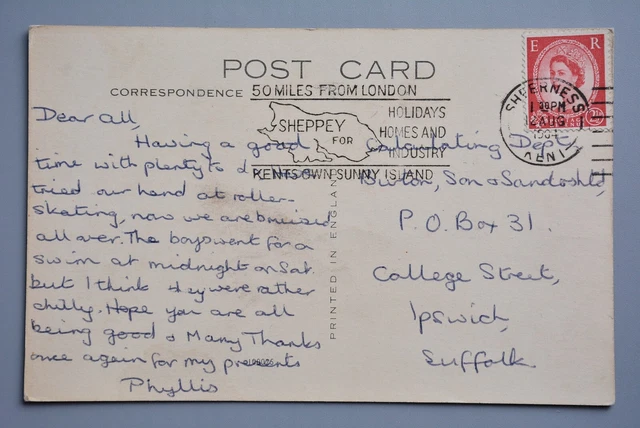 POST CARD
CORRESPONDENCE
50 MILES FROM LONDON
SHEPPEY
FOR
HOLIDAYS
HOMES AND
INDUSTRY
KENT'S OWN SUNNY ISLAND
E R
SHEERNESS
PM
12 AUG
KENT
2½
Dear all,
Having a good
time with plenty to
tried our hand at roller-
skating, now we are bruised
all over. The boys went for a
swim at midnight on Sat.
but I think they were rather
chilly. Hope you are all
being good & Many Thanks
once again for my presents
Phyllis
PRINTED IN ENGLAND
Calculating Dept,
Burton, Son & Sandos Ltd,
P.O. Box 31.
College Street,
Ipswich,
Suffolk.